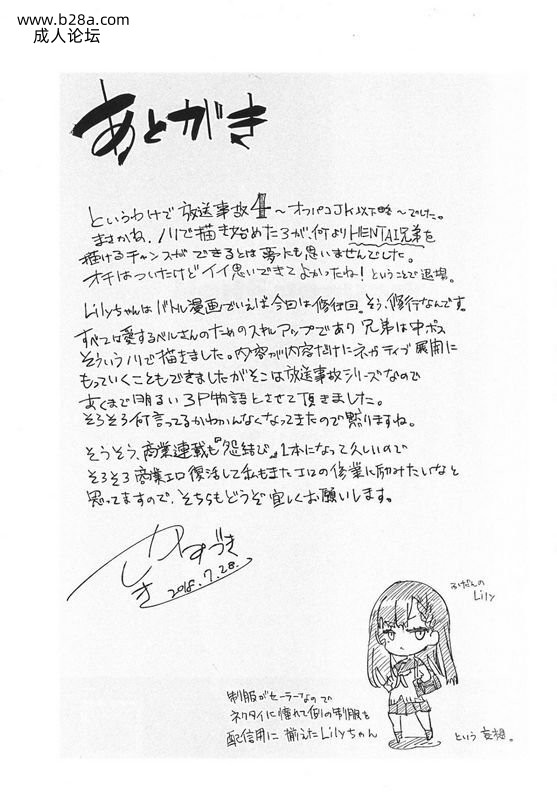 www.b28a.com
成人论坛
あとがき
というわけで放送事故4～オフパコJK以下略～でした。
まさかね、ノリで描き始めたろが、何よりHENTAI兄弟を
描けるチャンスができるとは夢にも思いませんでした。
オチはついたけどイイ思いできてよかったね！ということで退場。
Lilyちゃんはバトル漫画でいえば今回は修行回。そう、修行なんです。
すべては愛するベルさんのためのスキルアップであり兄弟は中ボス
そういうノリで描きました。内容が内容だけにネガティブ展開に
もっていくこともできましたがそこは放送事故シリーズなので
あくまで明るい3P物語とさせて頂きました。
そろそろ何言ってるかわかんなくなってきたので黙りますね。
そうそう、商業連載も『怨結び』1本になって久しいので
そろそろ商業エロ復活して私もまたエロの修業に励みたいなと
思ってますので、そちらもどうぞ宜しくお願いします。
かずづき
2018.7.28.
ふだんの
Lily
制服がセーラーなので
ネクタイに憧れて他の制服を
配信用に揃えたLilyちゃん
という妄想。